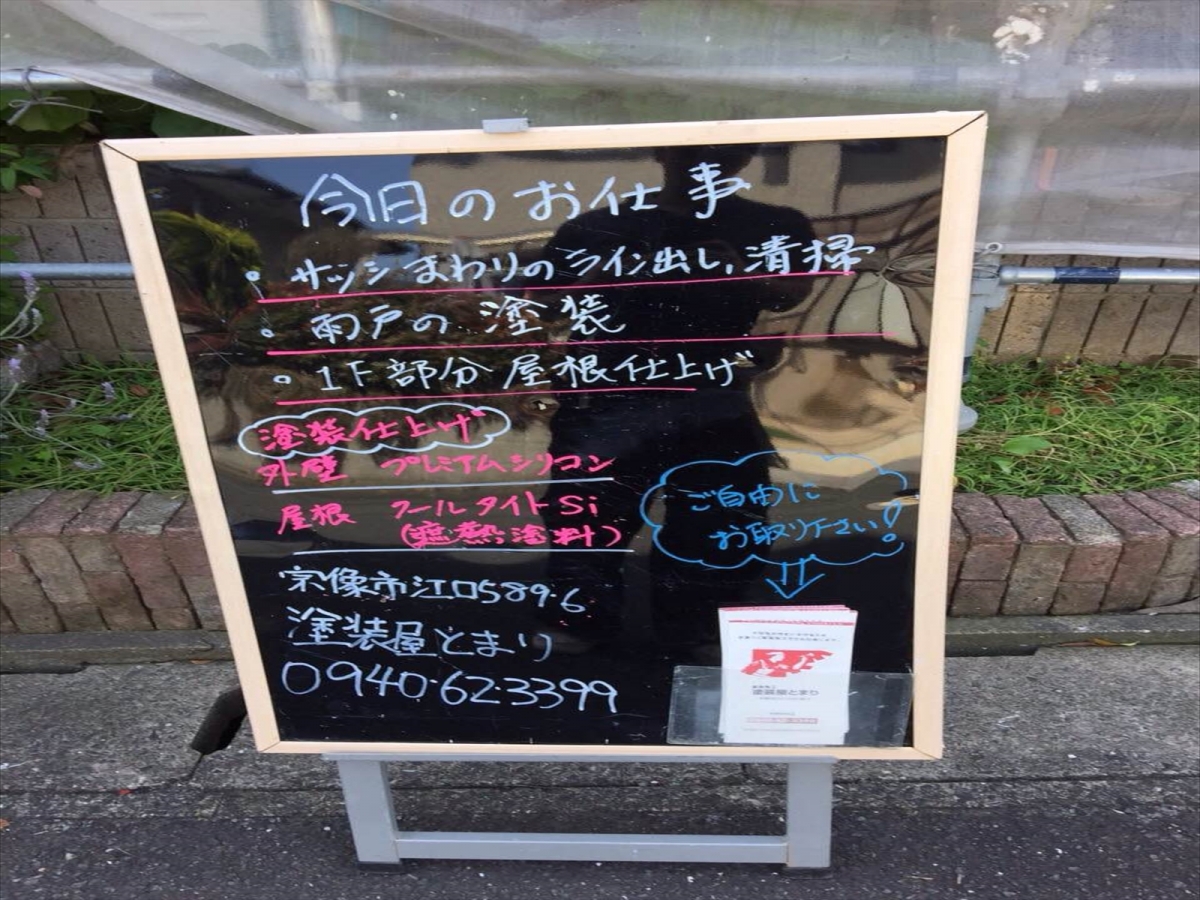 今日のお仕事
。サッシまわりのライン出し,清掃
。雨戸の塗装
。1F部分屋根仕上げ
塗装仕上げ
外壁 プレミアムシリコン
屋根 クールタイトSi
(遮熱塗料)
ご自由に
お取り下さい!
宗像市江口589-6
塗装屋とまり
0940-62-3399
塗装屋とまり